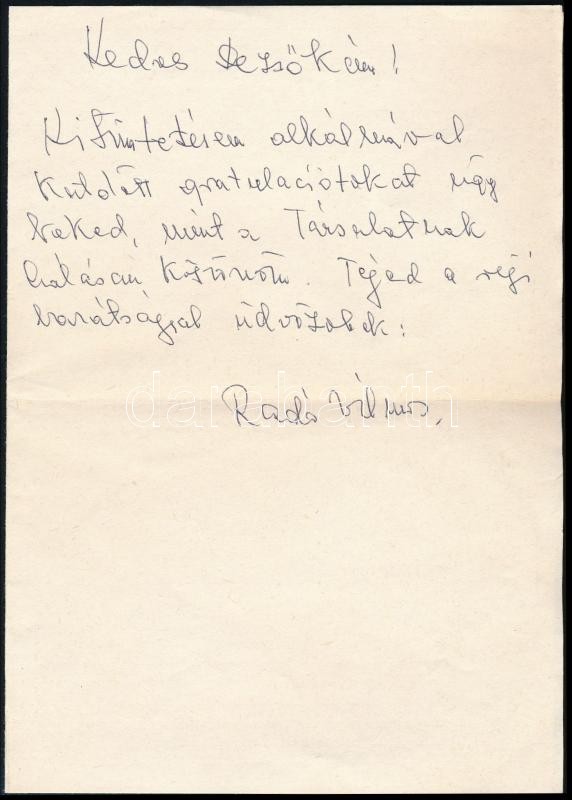 Kedves Dezsőkém!
Kitüntetésem alkalmával
küldött gratulációtokat úgy
Neked, mint a Társulatnak
hálásan köszönöm. Téged a régi
barátsággal üdvözöllek:
Radó Vilmos.
darabanth